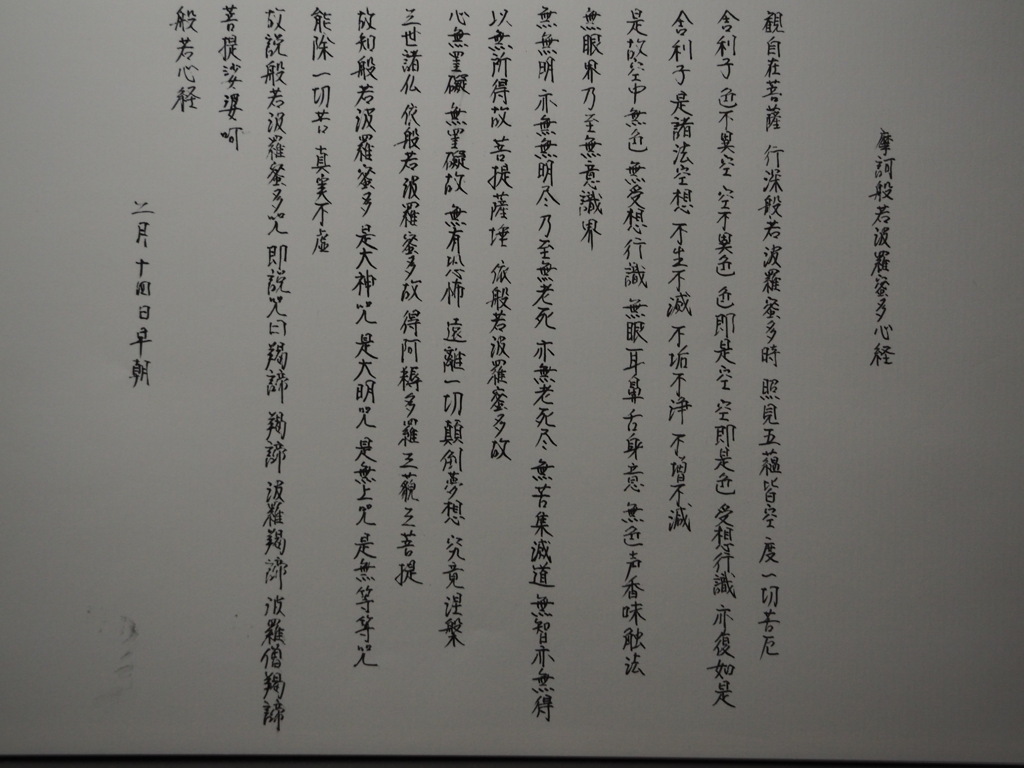 摩訶般若波羅蜜多心経
観自在菩薩 行深般若波羅蜜多時 照見五蘊皆空 度一切苦厄
舎利子 色不異空 空不異色 色即是空 空即是色 受想行識 亦復如是
舎利子 是諸法空想 不生不滅 不垢不浄 不増不減
是故空中 無色 無受想行識 無眼耳鼻舌身意 無色声香味触法
無眼界乃至無意識界
無無明 亦無無明尽 乃至無老死 亦無老死尽 無苦集滅道 無智亦無得
以無所得故 菩提薩埵 依般若波羅蜜多故
心無罣礙 無罣礙故 無有恐怖 遠離一切顛倒夢想 究竟涅槃
三世諸仏 依般若波羅蜜多故 得阿耨多羅三藐三菩提
故知般若波羅蜜多 是大神咒 是大明咒 是無上咒 是無等等咒
能除一切苦 真実不虚
故説般若波羅蜜多咒 即説咒曰 羯諦 羯諦 波羅羯諦 波羅僧羯諦
菩提娑婆呵
般若心経
二月十四日早朝